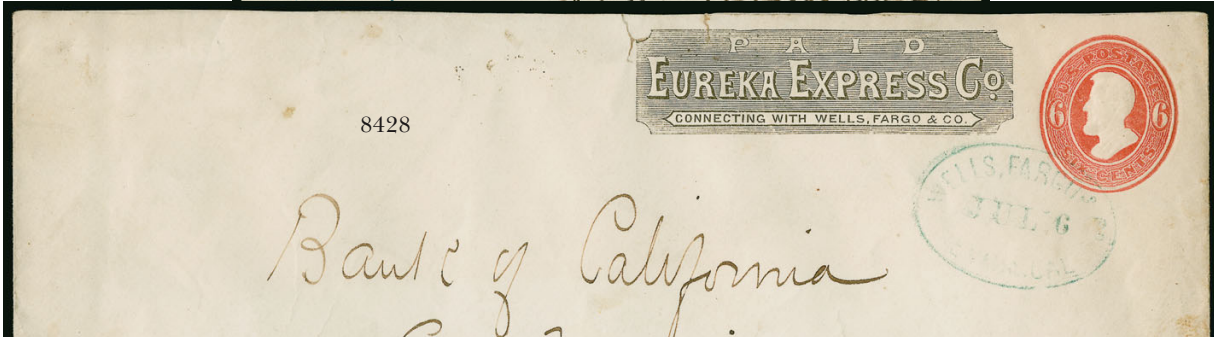 PAID
EUREKA EXPRESS Co.
CONNECTING WITH WELLS, FARGO & CO.
U.S. POSTAGE
6 6
SIX CENTS
8428
WELLS, FARGO
JUL 6
Bank of California